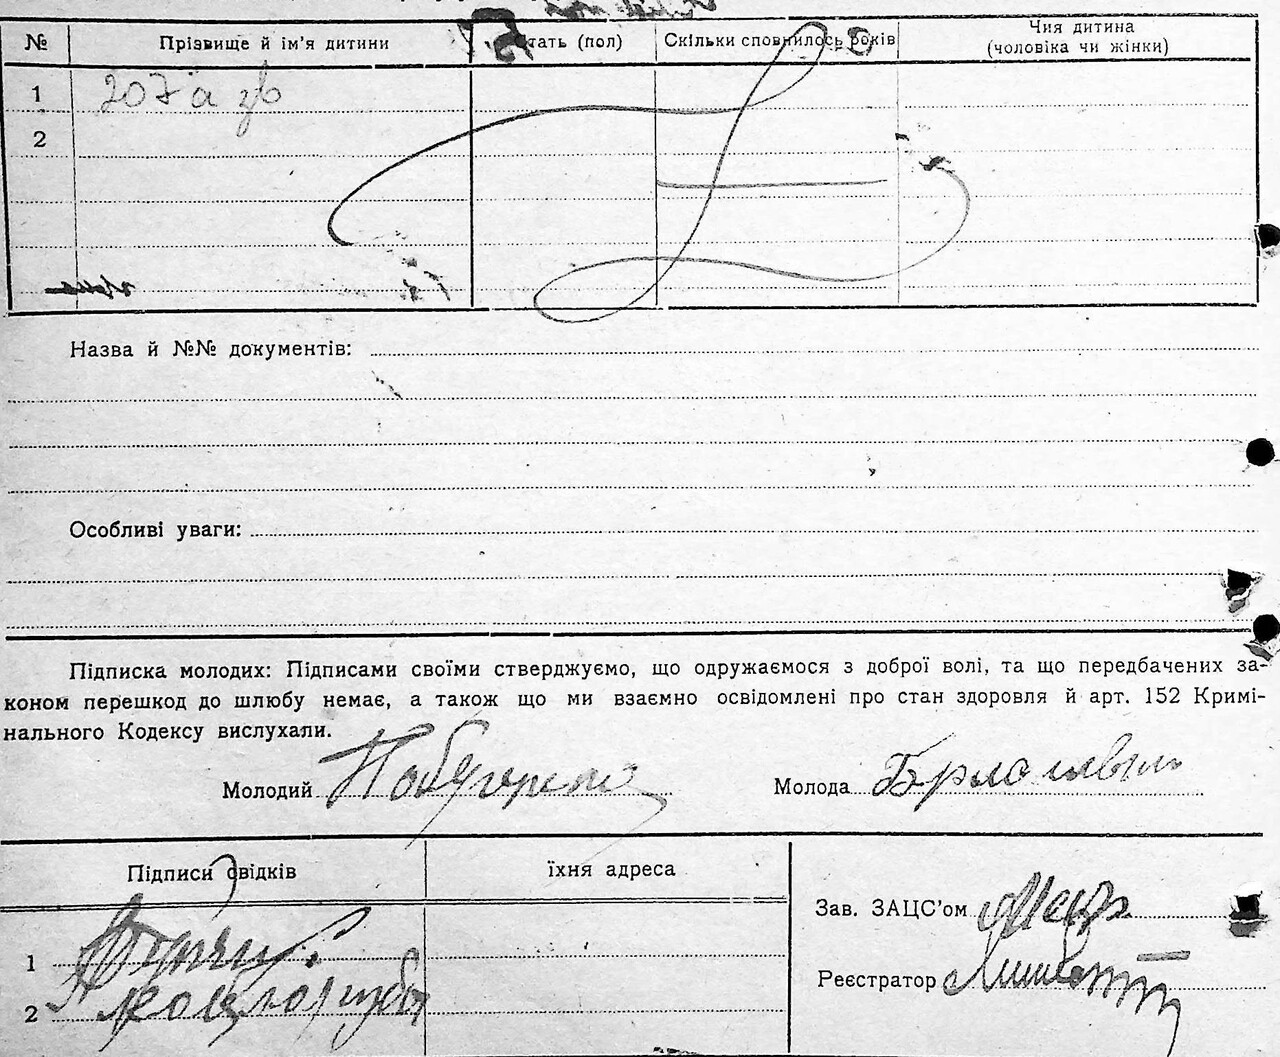 № Прізвище й ім'я дитини тать (пол) Скільки сповнилось років Чия дитина
(чоловіка чи жінки)
1 207 а зв
2
Назва й №№ документів:
Особливі уваги:
Підписка молодих: Підписами своїми стверджуємо, що одружаємося з доброї волі, та що передбачених за-
коном перешкод до шлюбу немає, а також що ми взаємно освідомлені про стан здоровля й арт. 152 Кримі-
нального Кодексу вислухали.
Молодий Молода
Підписи свідків їхня адреса
Зав. ЗАЦС'ом
1
Реєстратор
2